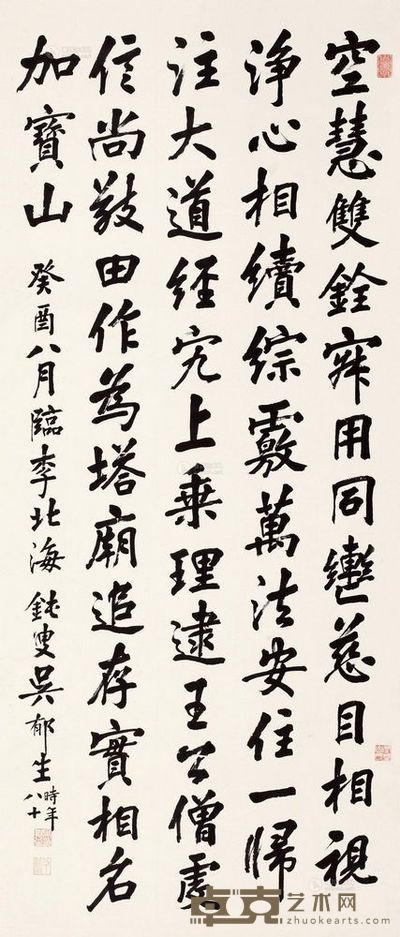 空慧雙銓寂用同轡慈目相視
淨心相續綜覈萬法安住一歸
注大道經究上乘理逮王公僧虔
信尚敬由作為塔廟追存實相名
加寶山
癸酉八月臨李北海 鈍叟吳郁生 時年八十
卓克艺术网
www.zhuokearts.com